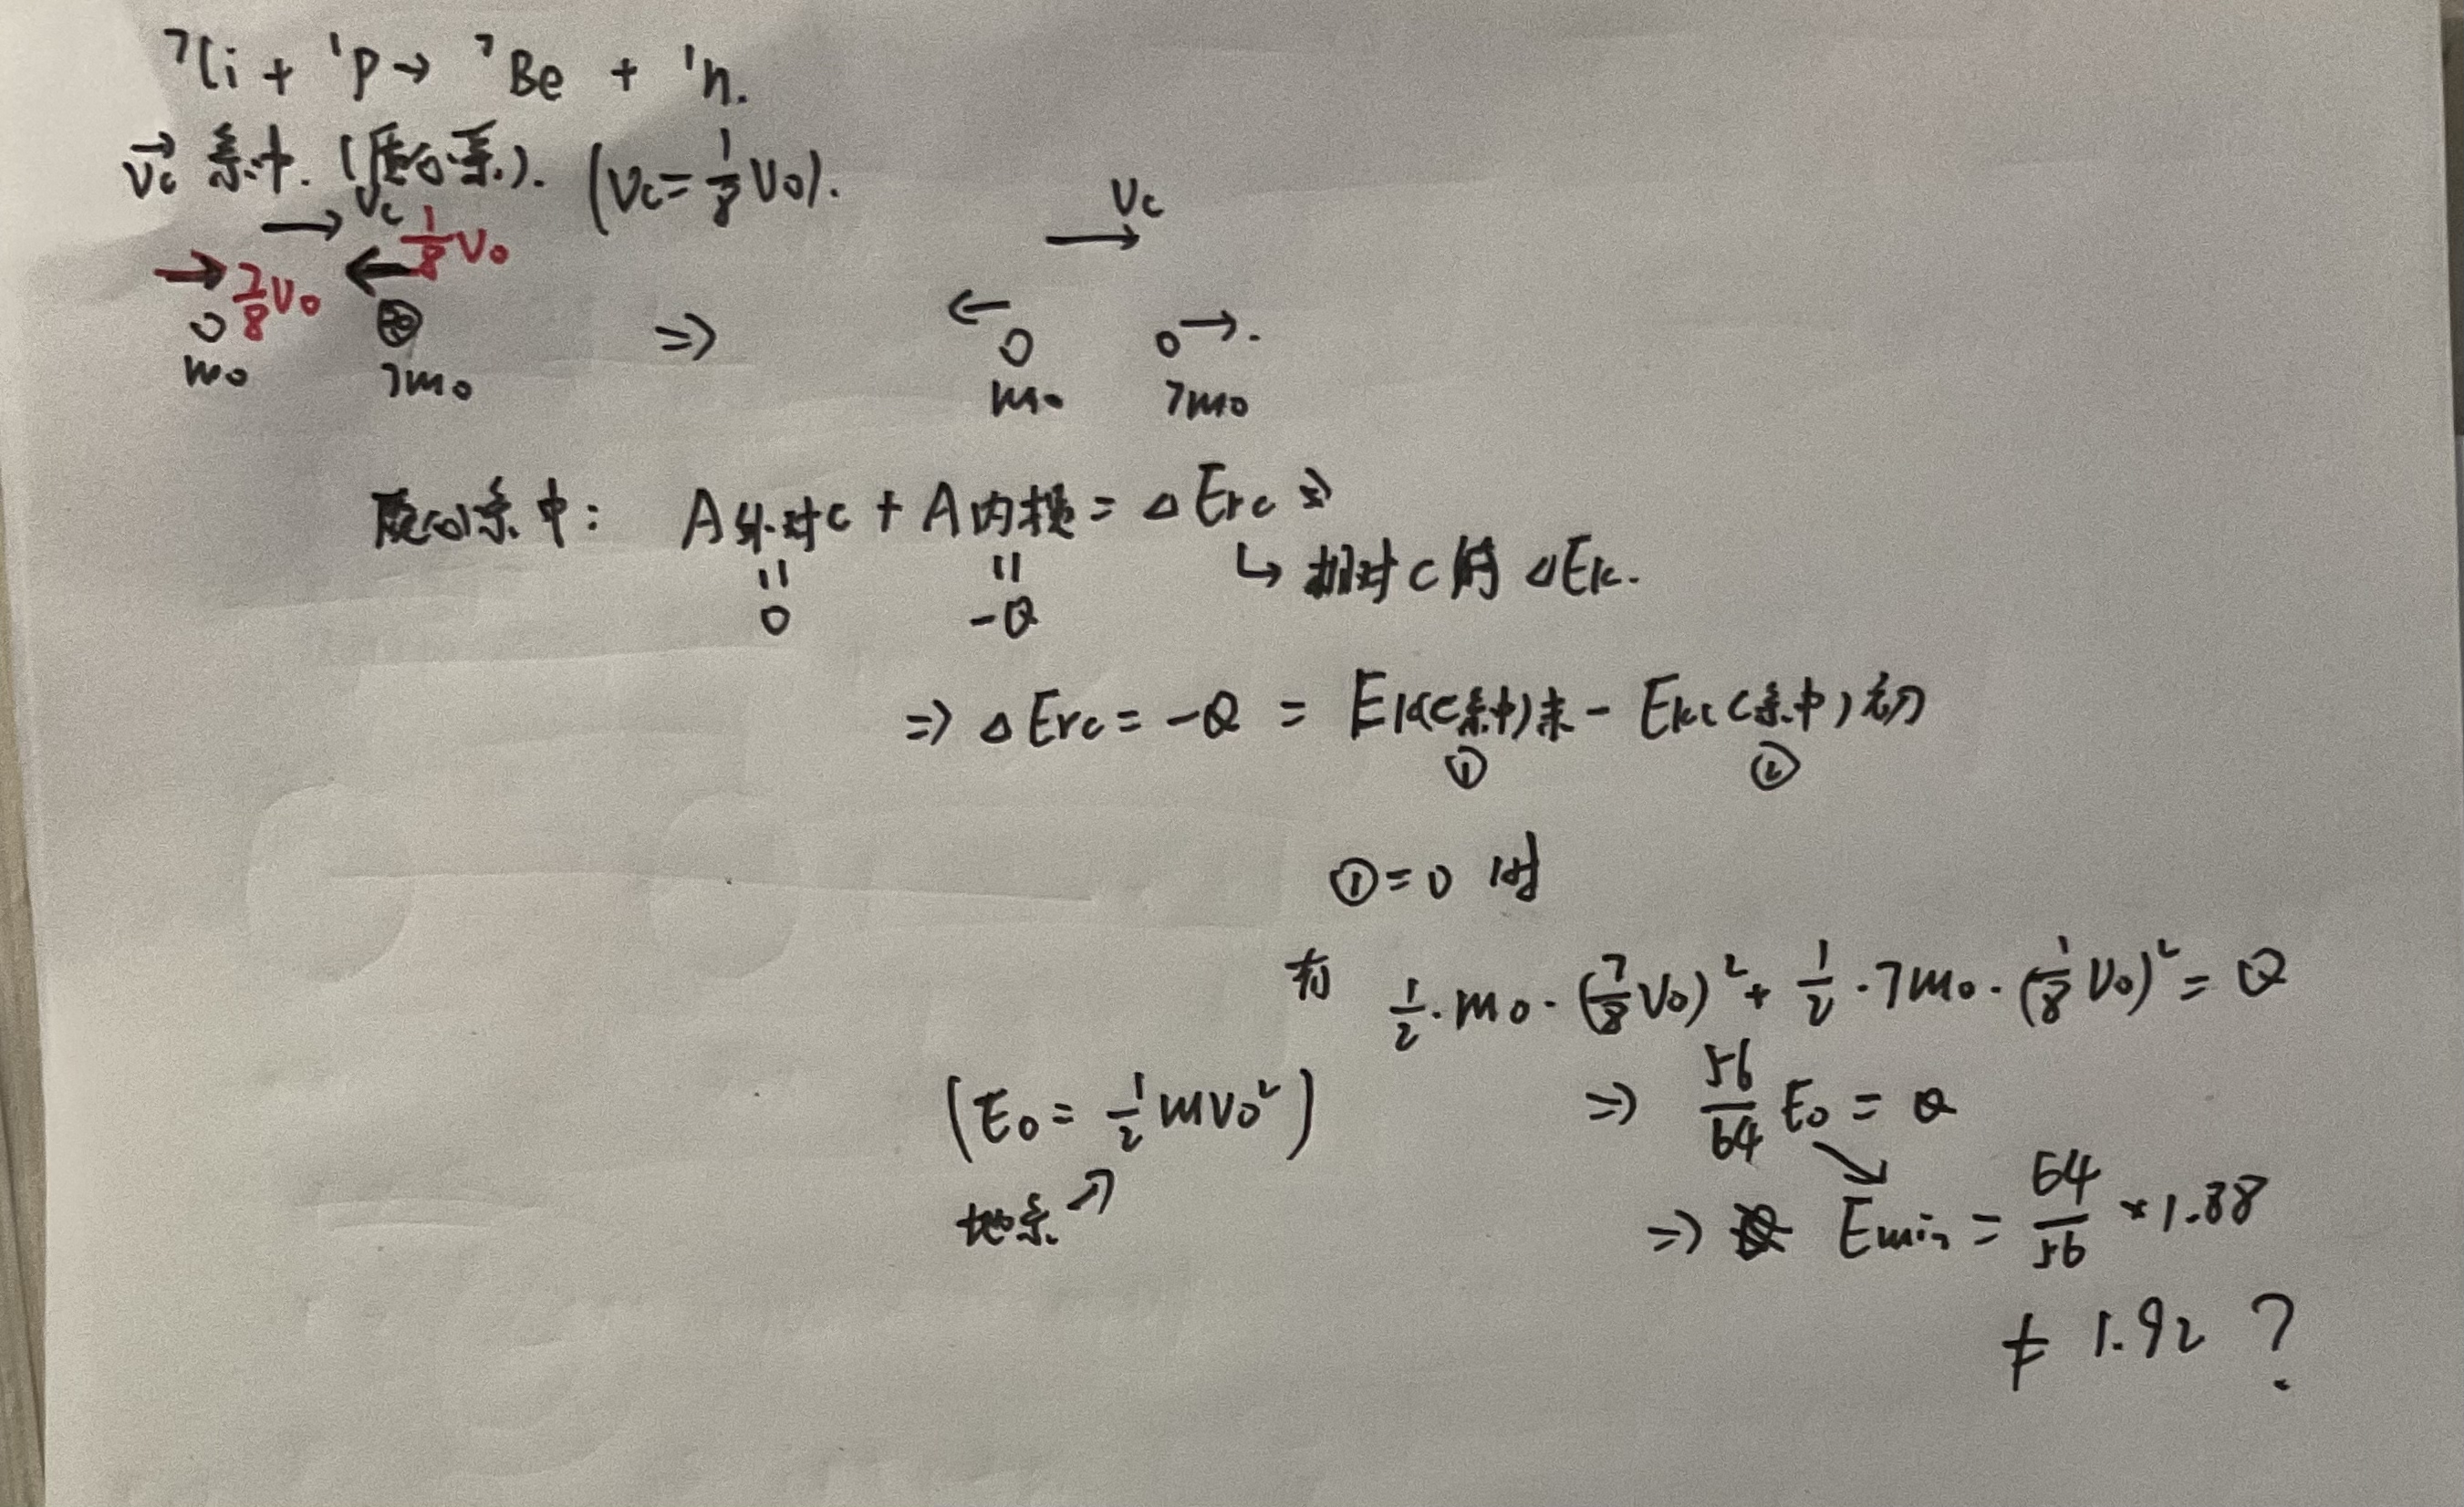 ⁷Li + ¹P → ⁷Be + ¹n.
v⃗c 系中. (质心系). (Vc = 1/8 V0).
→ Vc
→ 7/8 V0 ← 1/8 V0
m0 7m0
⇒
Vc →
← →.
m0 7m0
质心系中: A外对c + A内损 = ΔErc ⇒
|| ||
0 -Q
↳ 相对C的 ΔEk.
⇒ ΔErc = -Q = Ek(C系中)末 - Ek(C系中)初
① ②
① = 0 时
有 1/2 · m0 · (7/8 V0)² + 1/2 · 7m0 · (1/8 V0)² = Q
(E0 = 1/2 mV0²)
⇒ 56/64 E0 = Q
地系 ↗
⇒ Emin = 64/56 × 1.88
≠ 1.92 ?